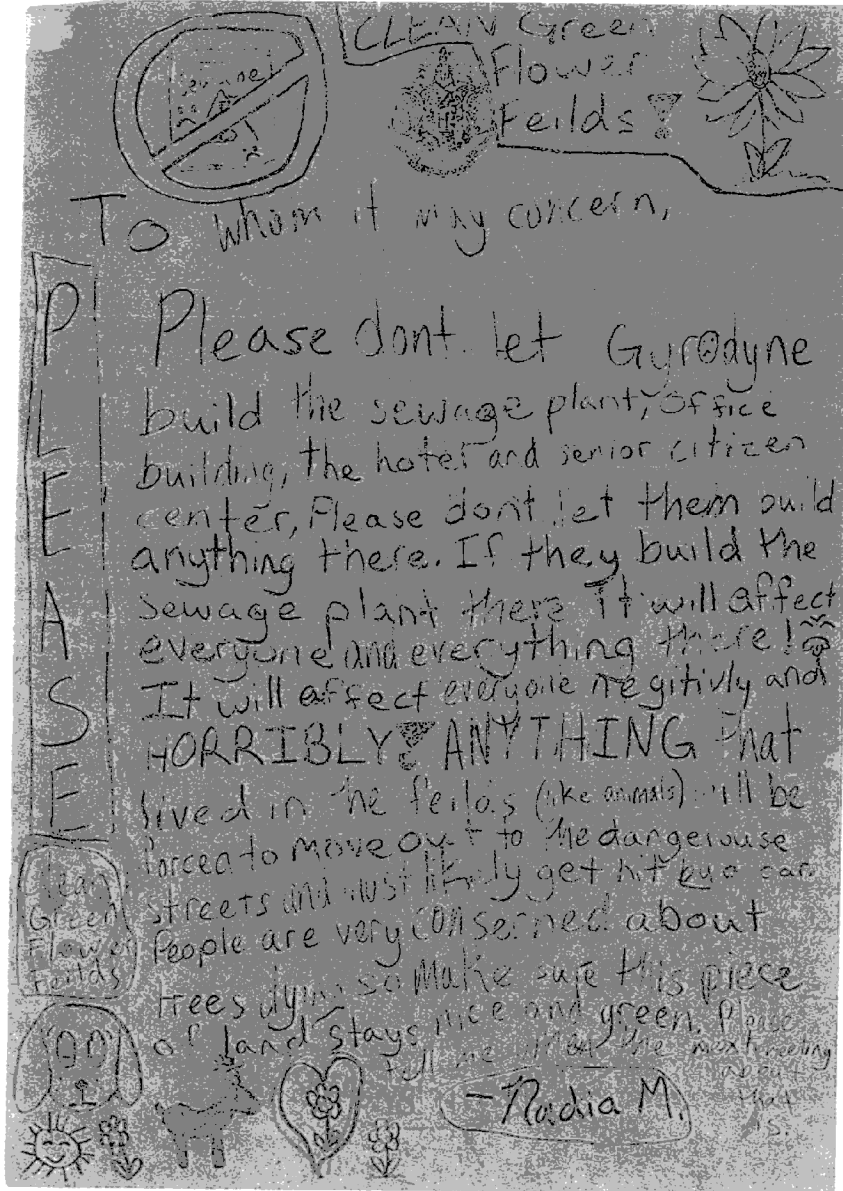 sewage
CLEAN Green
Flower
Feilds!
To whom it may concern,
P
L
E
A
S
E
Please dont let Gyrodyne
build the sewage plant, office
building, the hotel and senior citizen
center, Please dont let them build
anything there. If they build the
sewage plant there it will affect
everyone and everything there!
It will affect everyone negitivly and
HORRIBLY! ANYTHING that
lived in the feilds (like animals) will be
forced to move out to the dangerouse
streets and likely get hit by a car.
People are very conserned about
trees dying so make sure this piece
of land stays nice and green. Please
tell me when the next meeting
about
that
is.
Clean
Green
Flower
Feilds
-Nadia M.